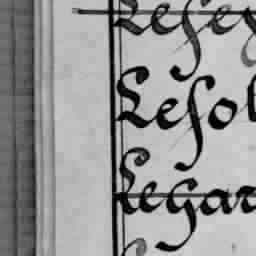 Lesey
Lesol
Legar